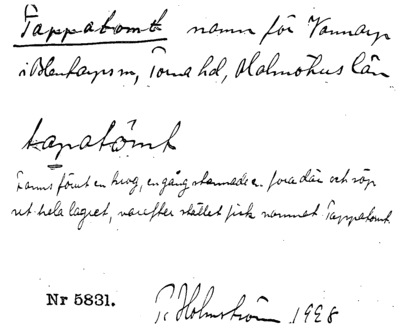 Tappatomt namn för Vannarp
i Blentarps sn, Torna hd, Malmöhus län
tapatömt
Fanns förut en krog, en gång stannade en fora där och söp
ut hela lagret, varefter stället fick namnet Tappatomt.
Nr 5831.
P. Holmström 1928